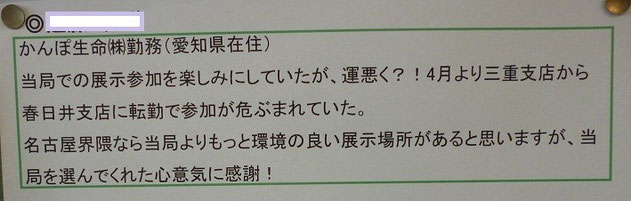 ◎
かんぽ生命㈱勤務（愛知県在住）
当局での展示参加を楽しみにしていたが、運悪く？！4月より三重支店から
春日井支店に転勤で参加が危ぶまれていた。
名古屋界隈なら当局よりもっと環境の良い展示場所があると思いますが、当
局を選んでくれた心意気に感謝！